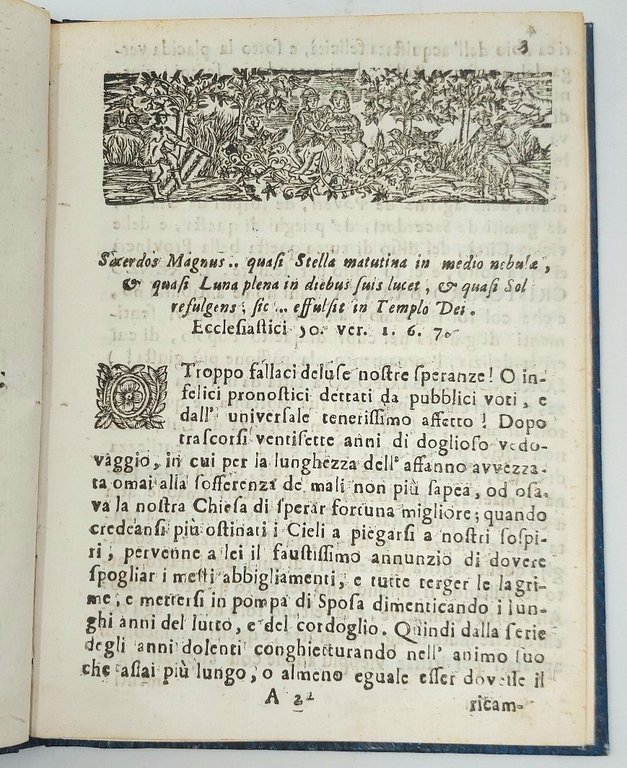 3
Sacerdos Magnus.. quaſi Stella matutina in medio nebulæ,
& quaſi Luna plena in diebus ſuis lucet, & quaſi Sol
refulgens; ſic .. effulſit in Templo Dei.
Eccleſiaſtici 50. ver. 1. 6. 7.
O Troppo fallaci deluſe noſtre ſperanze! O in-
felici pronoſtici dettati da pubblici voti, e
dall' univerſale teneriſſimo affetto! Dopo
traſcorſi ventiſette anni di doglioſo vedo-
vaggio, in cui per la lunghezza dell' affanno avvezza-
ta omai alla ſofferenza de mali non più ſapea, od oſa-
va la noſtra Chieſa di ſperar fortuna migliore; quando
credeanſi più oſtinati i Cieli a piegarſi a noſtri ſoſpi-
ri, pervenne a lei il fauſtiſſimo annunzio di dovere
ſpogliar i meſti abbigliamenti, e tutte terger le lagri-
me, e metterſi in pompa di Spoſa dimenticando i lun-
ghi anni del lutto, e del cordoglio. Quindi dalla ſerie
degli anni dolenti conghietturando nell' animo ſuo
che aſſai più lungo, o almeno eguale eſſer doveſſe il
A 2 ricam-